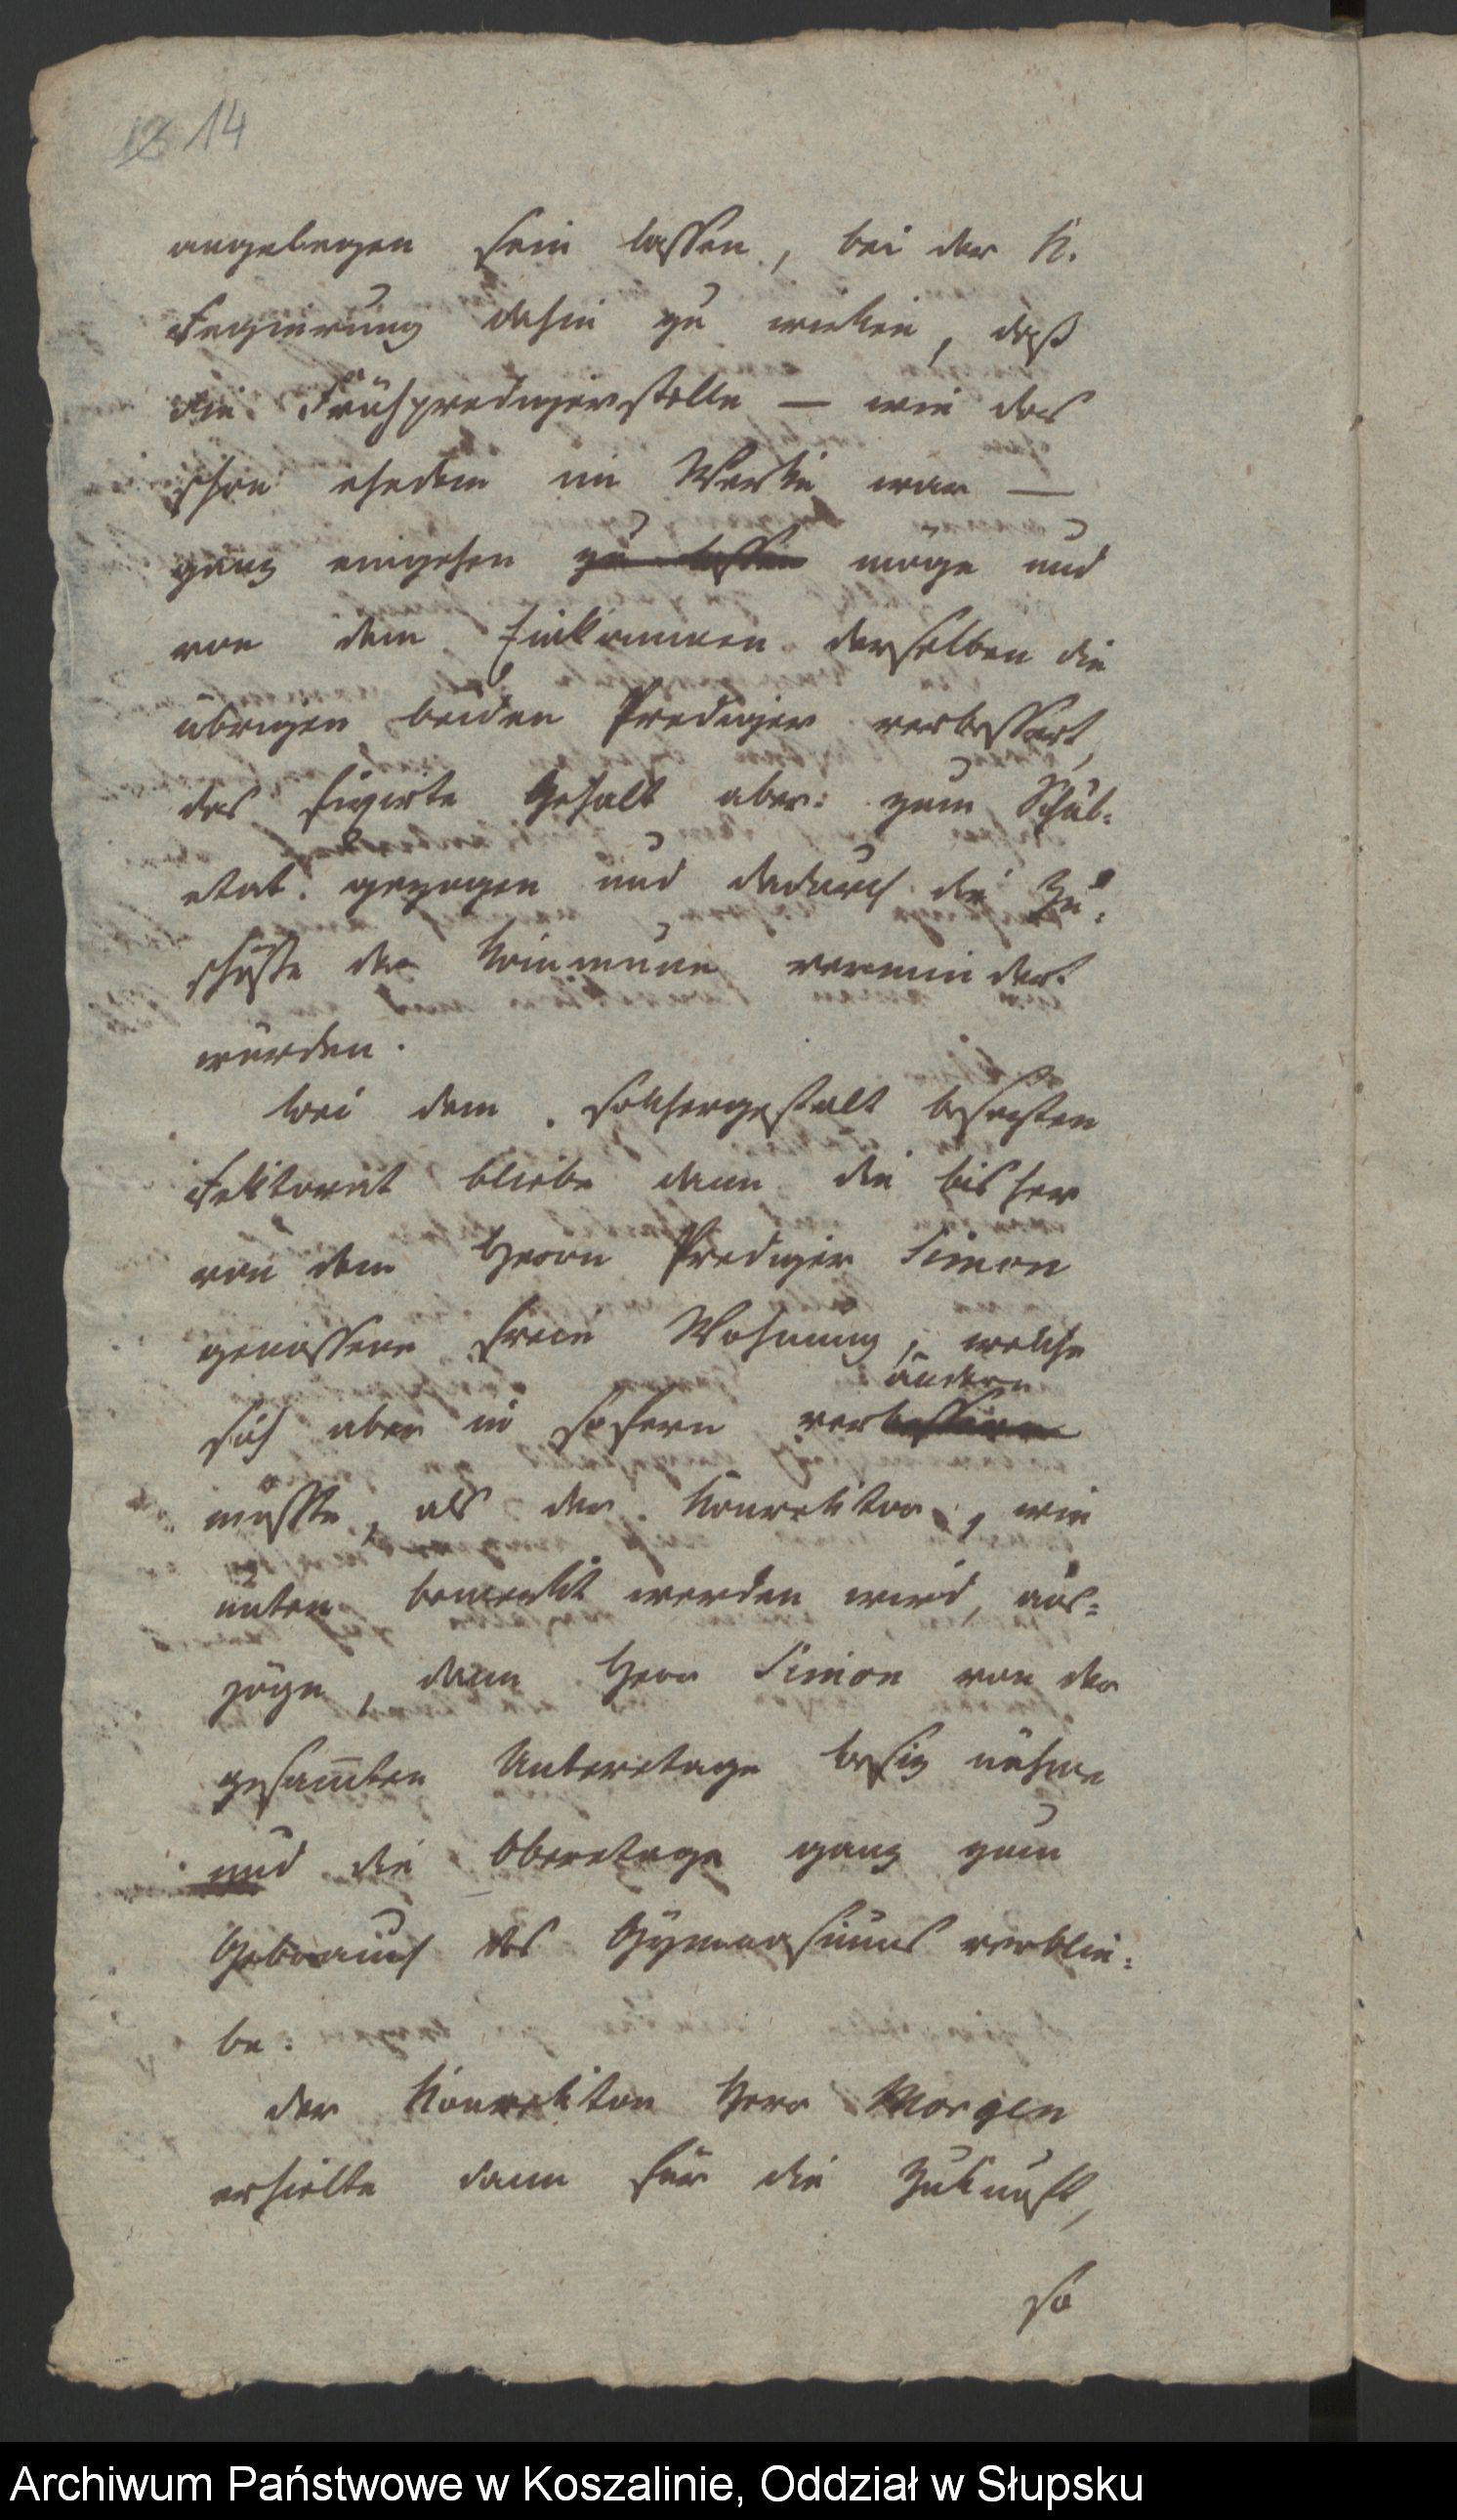 13 14
angelegen sein lassen, bei der K.
Regierung dahin zu wirken, daß
die Frühpredigerstelle — wie das
schon ehedem im Werke war —
ganz eingehen zu lassen möge und
von dem Einkommen derselben die
übrigen beiden Prediger verbessert,
das fixirte Gehalt aber zum Schul-
etat gezogen und dadurch die Zu-
schüsse der Kommune vermindert
würden.
Bei dem solchergestalt besetzten
Rektorat bliebe dann die bisher
von dem Herrn Prediger Simon
genossene freie Wohnung, welche
ändern
sich aber in sofern verbessern
müßte, als der Konrektor, wie
unten bemerkt werden wird, aus-
zöge, dann Herr Simon von der
gesammten Unteretage Besitz nähme
und die Oberetage ganz zum
Gebrauch des Gymnasiums verblie-
be.
Der Konrektor Herr Morgen
erhielte dann für die Zukunft,
so
Archiwum Państwowe w Koszalinie, Oddział w Słupsku